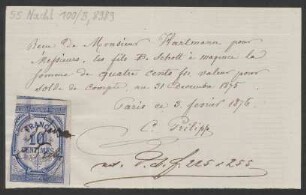 55 Nachl 100/B, 8383
Reçu de Monsieur Hartmann pour
Messieurs les fils B. Schott à Mayence la
somme de quatre cents frs valeur pour
solde de compte au 31 Décembre 1875
Paris ce 3 février 1876
C. Philipp
10
CENTIMES
225 à 255